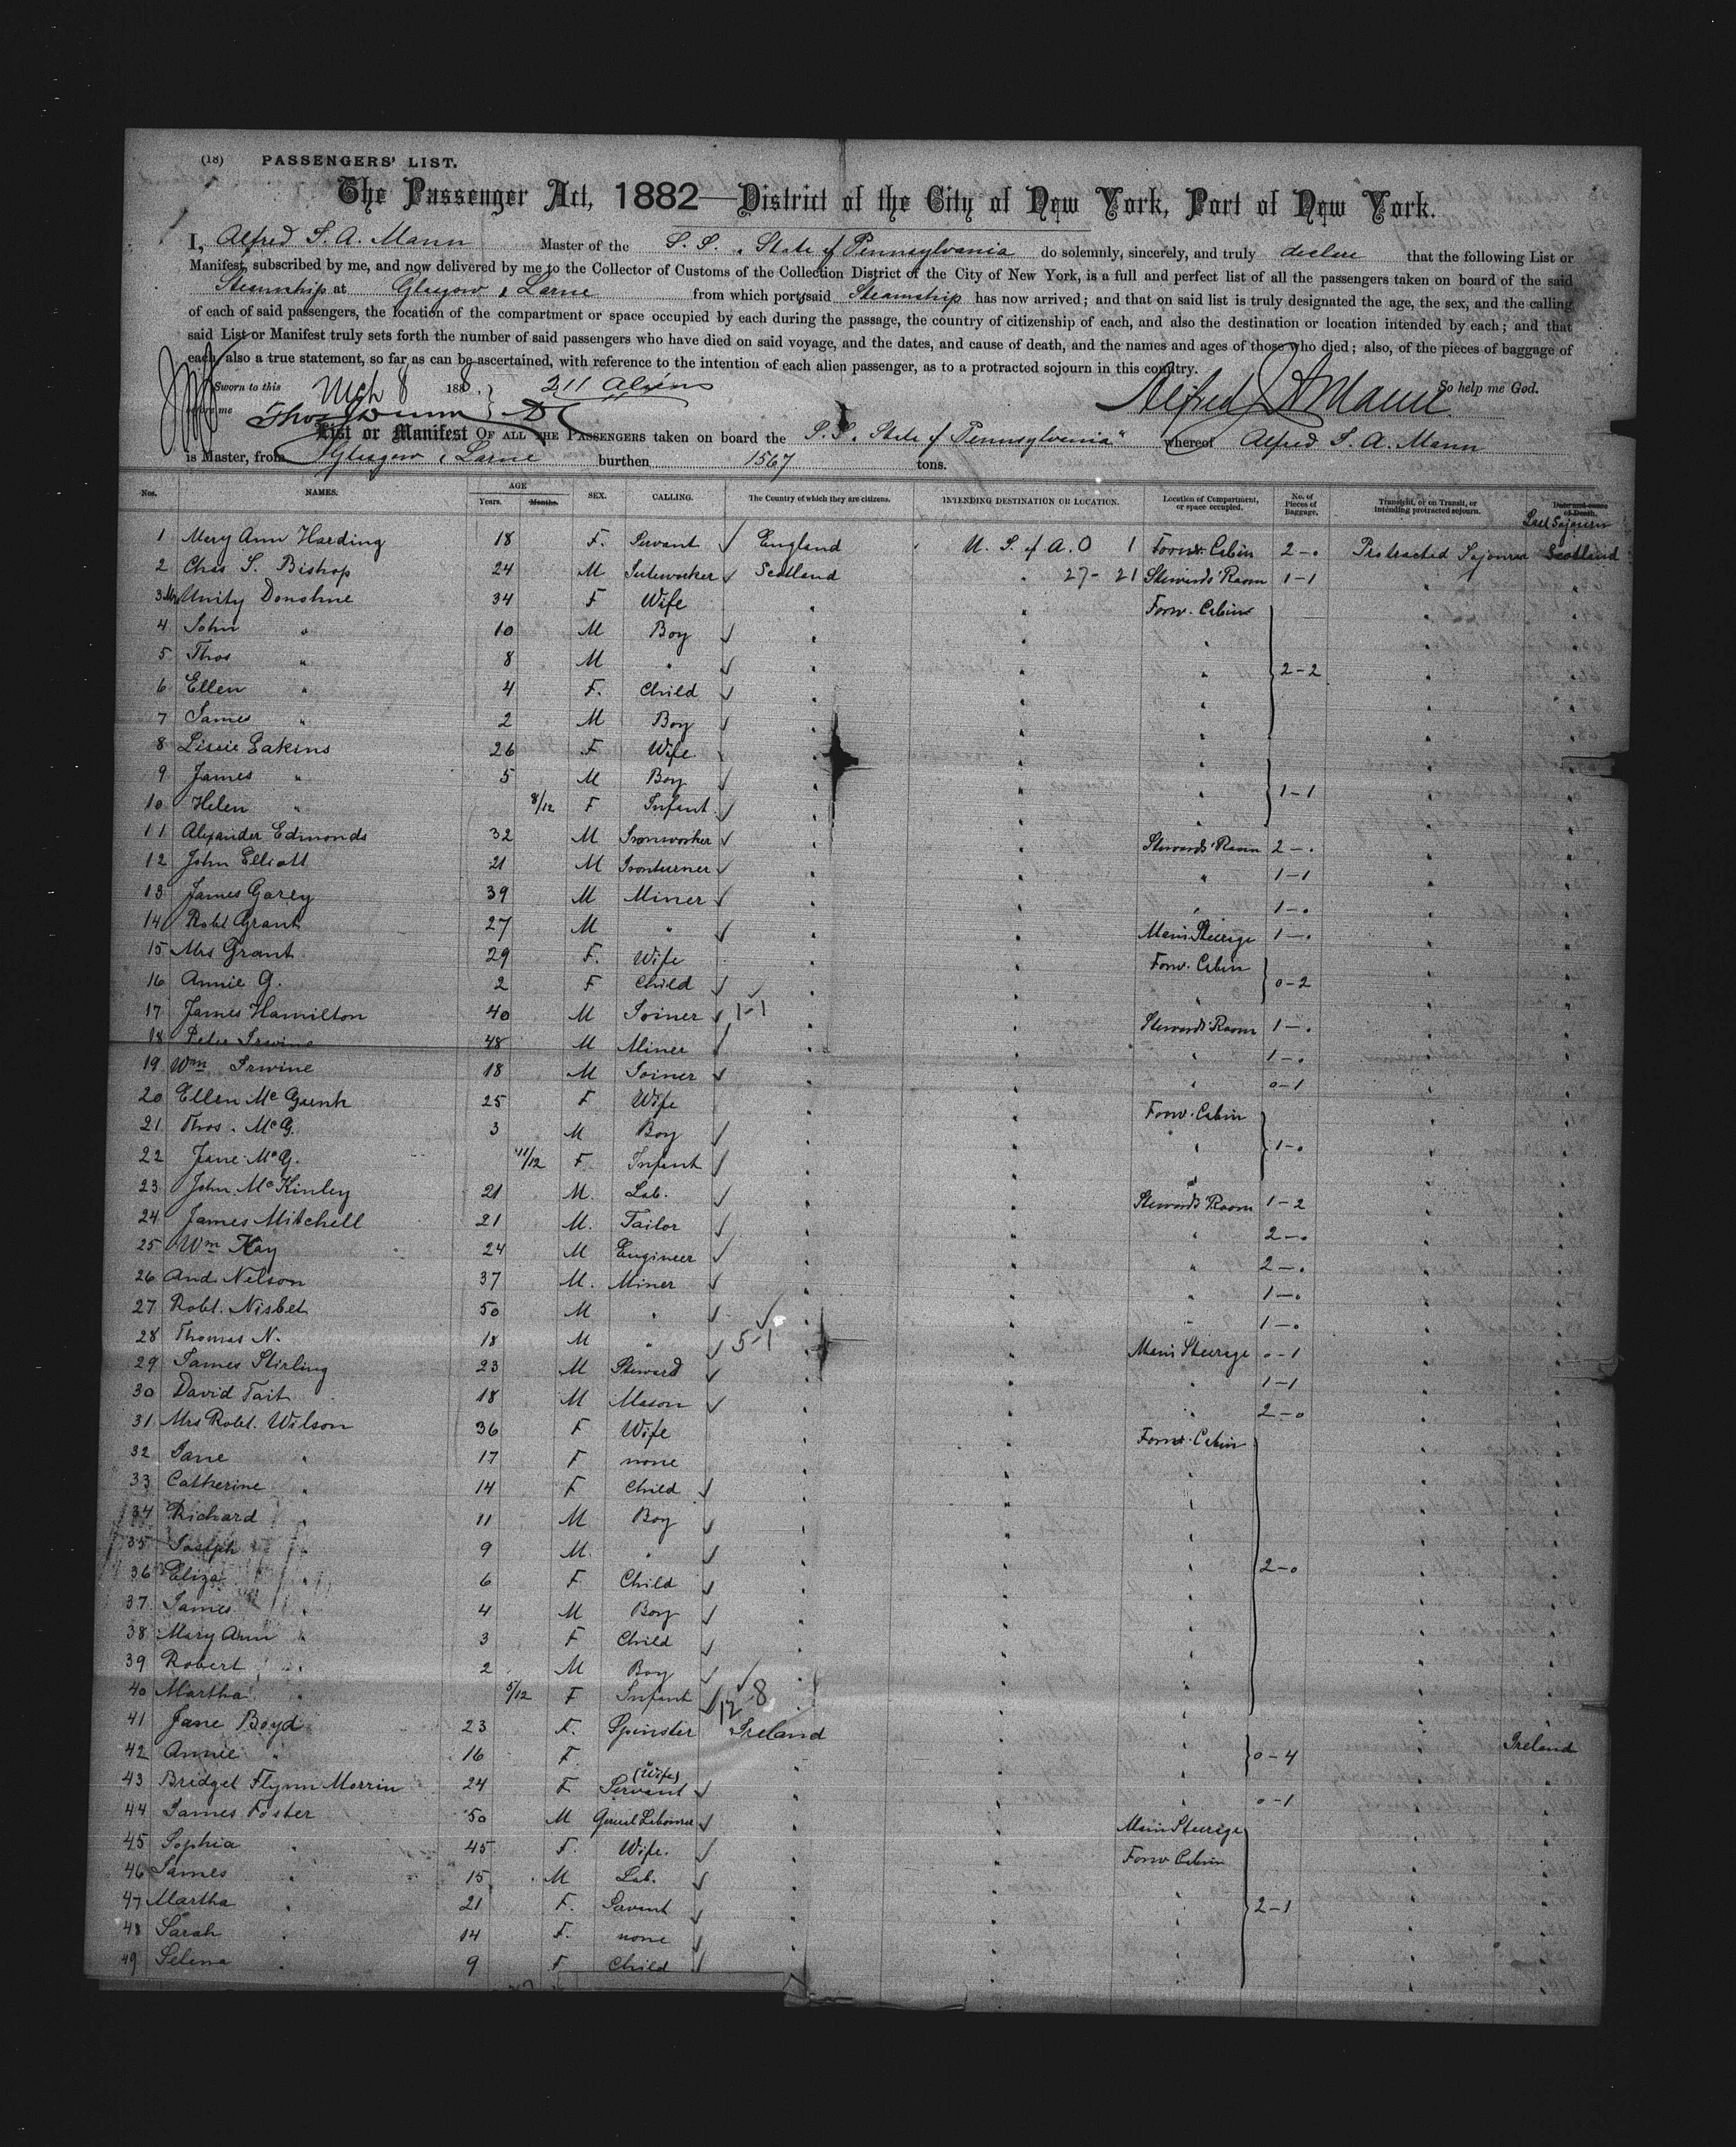 (18) PASSENGERS' LIST.
The Passenger Act, 1882—District of the City of New York, Port of New York.
I, Alfred S. A. Mann Master of the S. S. "State of Pennsylvania do solemnly, sincerely, and truly declare that the following List or
Manifest, subscribed by me, and now delivered by me to the Collector of Customs of the Collection District of the City of New York, is a full and perfect list of all the passengers taken on board of the said
Steamship at Glasgow & Larne from which ports, said Steamship has now arrived; and that on said list is truly designated the age, the sex, and the calling
of each of said passengers, the location of the compartment or space occupied by each during the passage, the country of citizenship of each, and also the destination or location intended by each; and that
said List or Manifest truly sets forth the number of said passengers who have died on said voyage, and the dates, and cause of death, and the names and ages of those who died; also, of the pieces of baggage of
each, also a true statement, so far as can be ascertained, with reference to the intention of each alien passenger, as to a protracted sojourn in this country.
Sworn to this Mch 8 1888. 211 Aliens So help me God.
before me Alfred S A Mann
List or Manifest OF ALL THE PASSENGERS taken on board the S.S. "State of Pennsylvania" whereof Alfred S. A. Mann
is Master, from Glasgow & Larne burthen 1567 tons.
Nos. NAMES. AGE Years. Months. SEX. CALLING. The Country of which they are citizens. INTENDING DESTINATION OR LOCATION. Location of Compartment, or space occupied. No. of Pieces of Baggage. Transient, or on Transit, or intending protracted sojourn. Date and cause of Death.
Last Sojourn
1 Mary Ann Harding 18 F. Servant √ England U. S. of A. 0 1 Forw. Cabin 2-0 Protracted Sojourn Scotland
2 Chas S. Bishop 24 M √ Scotland " 27-21 Stewards' Room 1-1 " "
3 Mrs Unity Donohue 34 F Wife " " Forw. Cabin " "
4 John " 10 M Boy √ " " " " "
5 Thos " 8 M " √ " " " 2-2 " "
6 Ellen " 4 F. Child √ " " " " "
7 James " 2 M Boy √ " " " " "
8 Lizzie Eakins 26 F Wife " " " " "
9 James " 5 M Boy √ " " " 1-1 " "
10 Helen " 8/12 F Infant √ " " " " "
11 Alexander Edmonds 32 M Ironworker √ " " Stewards' Room 2-0 " "
12 John Elliott 21 M Ironturner √ " " " 1-1 " "
13 James Garey 39 M Miner √ " " " 1-0 " "
14 Robt Grant 27 M " √ " " Main Steerage 1-0 " "
15 Mrs Grant 29 F. Wife " " Forw. Cabin " "
16 Annie G. 2 F Child √ √ " " " 0-2 " "
17 James Hamilton 40 M Joiner √ 1-1 " " Stewards' Room 1-0 " "
18 Peter Irwine 48 M Miner √ " " " 1-0 " "
19 Wm Irwine 18 M Joiner √ " " " 0-1 " "
20 Ellen McGurk 25 F Wife " " Forw. Cabin " "
21 Thos. McG. 3 M Boy √ " " " 1-0 " "
22 Jane McG. 11/12 F Infant √ " " " " "
23 John McKinley 21 M. Lab. √ " " Stewards' Room 1-2 " "
24 James Mitchell 21 M. Tailor √ " " " 2-0 " "
25 Wm Kay 24 M Engineer √ " " " 2-0 " "
26 And. Nelson 37 M. Miner √ " " " 1-0 " "
27 Robt. Nisbet 50 M " √ √ " " " 1-0 " "
28 Thomas N. 18 M " √ 5-1 " " Main Steerage 0-1 " "
29 James Stirling 23 M Steward √ " " " 1-1 " "
30 David Tait 18 M Mason √ " " " 2-0 " "
31 Mrs Robt. Wilson 36 F Wife " " Forw. Cabin " "
32 Jane " 17 F none " " " " "
33 Catherine " 14 F Child √ " " " " "
34 Richard " 11 M Boy √ " " " " "
35 Joseph " 9 M. " √ " " " " "
36 Eliza " 6 F Child √ " " " 2-0 " "
37 James " 4 M Boy √ " " " " "
38 Mary Ann " 3 F Child √ " " " " "
39 Robert " 2 M Boy √ √ " " " " "
40 Martha " 5/12 F Infant √ 12-8 " " " " "
41 Jane Boyd 23 F. Spinster Ireland " " " Ireland
42 Annie " 16 F. " " " 0-4 " "
43 Bridget Flynn Morrin 24 F (Wife) Servant √ " " " 0-1 " "
44 James Foster 50 M General Labourer √ " " Main Steerage " "
45 Sophia " 45 F. Wife. √ " " Forw Cabin " "
46 James " 15 M Lab. √ " " " "
47 Martha " 21 F. Servant √ " " " 2-1 " "
48 Sarah " 14 F. none √ " " " " "
49 Selina " 9 F Child √ " " " " "